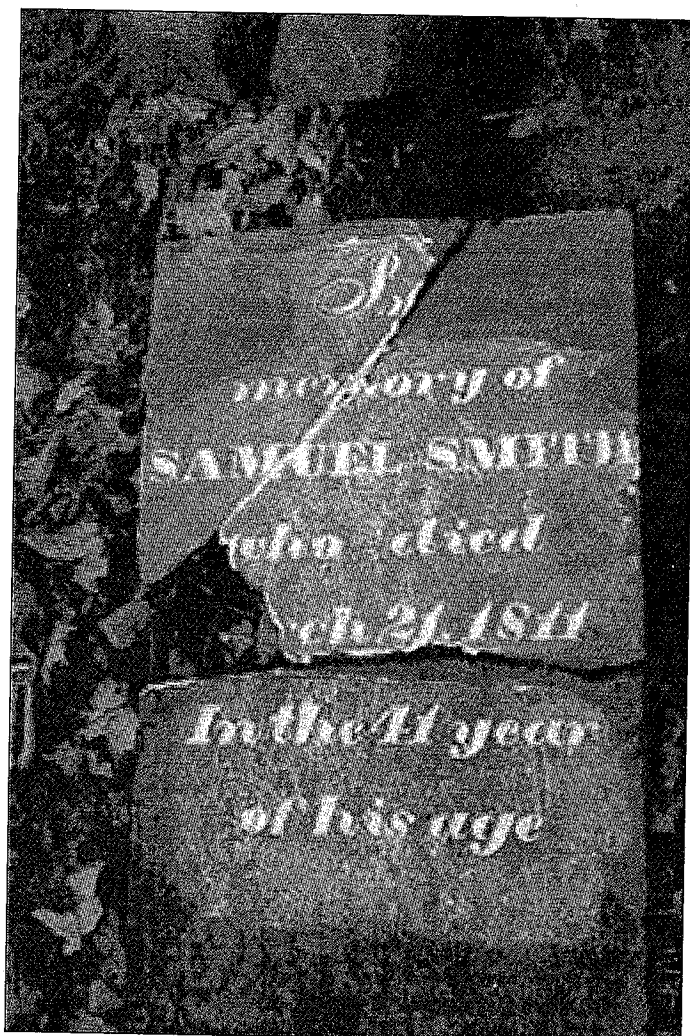 In
memory of
SAMUEL SMITH
who died
rch 21, 1841
In the 41 year
of his age